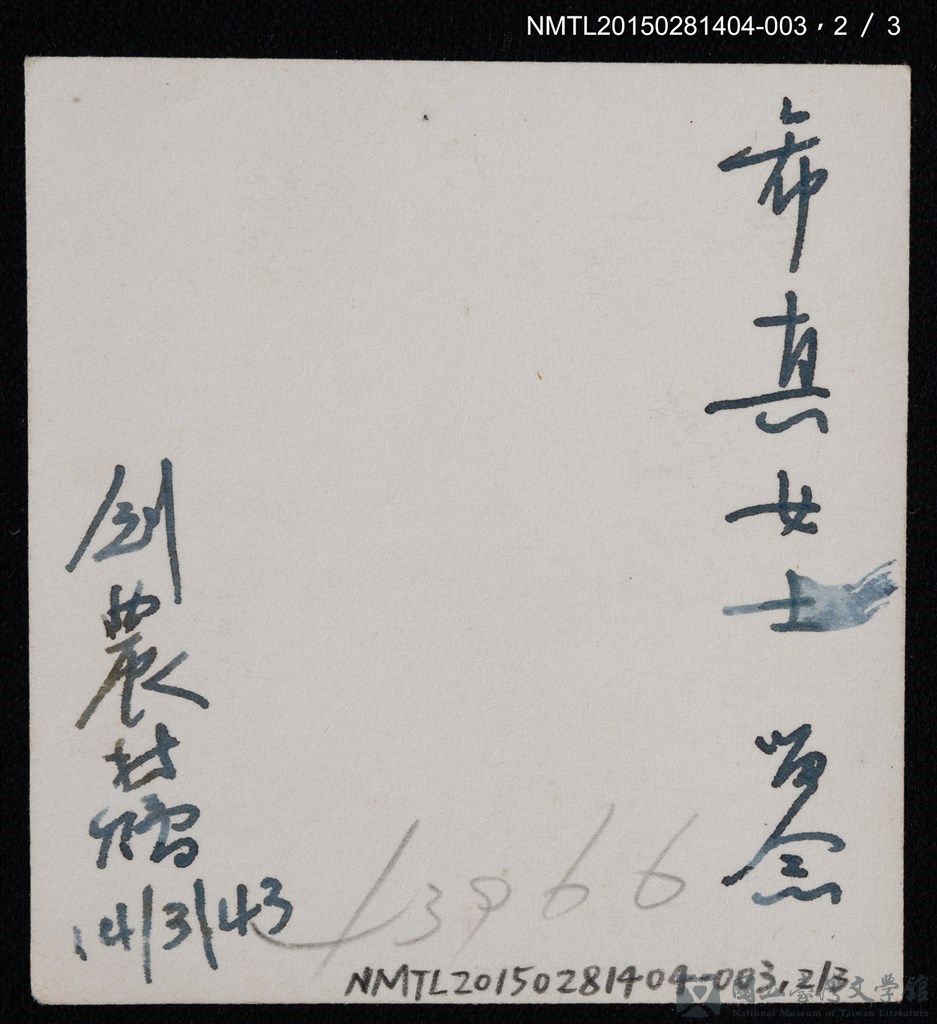 NMTL20150281404-003，2 / 3
希真女士 留念
剑農
14/3/43
13966
NMTL20150281404-003, 2/3
國立臺灣文學館
National Museum of Taiwan Literature